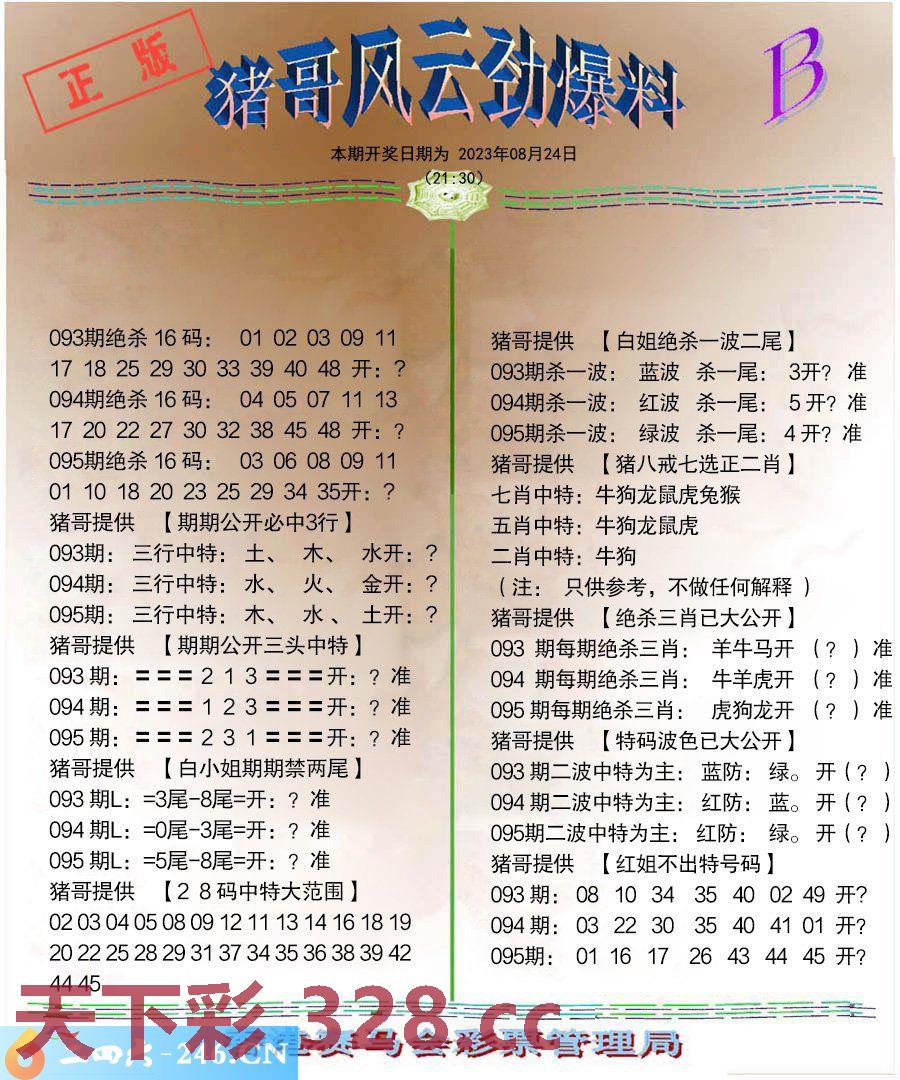 正版
猪哥风云劲爆料
B
本期开奖日期为 2023年08月24日
(21:30)
093期绝杀 16 码： 01 02 03 09 11
17 18 25 29 30 33 39 40 48 开：?
094期绝杀 16 码： 04 05 07 11 13
17 20 22 27 30 32 38 45 48 开：?
095期绝杀 16 码： 03 06 08 09 11
01 10 18 20 23 25 29 34 35开：?
猪哥提供 【期期公开必中3行】
093期：三行中特：土、 木、 水开：?
094期：三行中特：水、 火、 金开：?
095期：三行中特：木、 水 、 土开：?
猪哥提供 【期期公开三头中特】
093 期：＝＝＝２１３＝＝＝开：? 准
094 期：＝＝＝１２３＝＝＝开：? 准
095 期：＝＝＝２３１＝＝＝开：? 准
猪哥提供 【白小姐期期禁两尾】
093 期L：=3尾-8尾=开：? 准
094 期L：=0尾-3尾=开：? 准
095 期L：=5尾-8尾=开：? 准
猪哥提供 【２８码中特大范围】
02 03 04 05 08 09 12 11 13 14 16 18 19
20 22 25 28 29 31 37 34 35 36 38 39 42
44 45
猪哥提供 【白姐绝杀一波二尾】
093期杀一波： 蓝波 杀一尾： 3开? 准
094期杀一波： 红波 杀一尾： 5 开? 准
095期杀一波： 绿波 杀一尾： 4 开? 准
猪哥提供 【猪八戒七选正二肖】
七肖中特：牛狗龙鼠虎兔猴
五肖中特：牛狗龙鼠虎
二肖中特：牛狗
（注： 只供参考，不做任何解释 ）
猪哥提供 【绝杀三肖已大公开】
093 期每期绝杀三肖： 羊牛马开 （? ）准
094 期每期绝杀三肖： 牛羊虎开 （? ）准
095 期每期绝杀三肖： 虎狗龙开 （? ）准
猪哥提供 【特码波色已大公开】
093 期二波中特为主： 蓝防：绿。开（? ）
094 期二波中特为主： 红防：蓝。开（? ）
095期二波中特为主： 红防： 绿。开（? ）
猪哥提供 【红姐不出特号码】
093 期： 08 10 34 35 40 02 49 开?
094 期： 03 22 30 35 40 41 01 开?
095期： 01 16 17 26 43 44 45 开?
天下彩 328.cc
-246.CN
赛马会彩票管理局